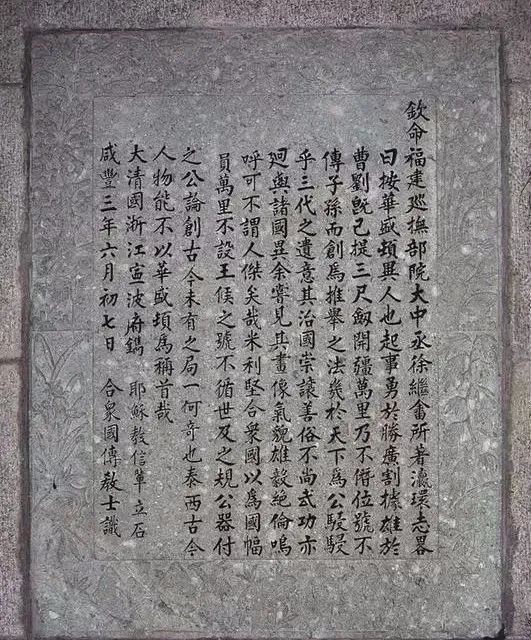 欽命福建廵撫部院大中丞徐繼畬所著瀛環志畧
曰按華盛頓異人也起事勇於勝廣割據雄於
曹劉旣已提三尺劔開疆萬里乃不僭位號不
傳子孫而創爲推舉之法幾於天下爲公駸駸
乎三代之遺意其治國崇讓善俗不尚武功亦
迥與諸國異余嘗見其畫像氣貌雄毅絶倫嗚
呼可不謂人傑矣哉米利堅合衆國以爲國幅
員萬里不設王侯之號不循世及之規公器付
之公論創古今未有之局一何奇也泰西古今
人物能不以華盛頓爲稱首哉
大清國浙江寧波府鐫 耶穌教信輩立石
咸豐三年六月初七日 合衆國傳教士識